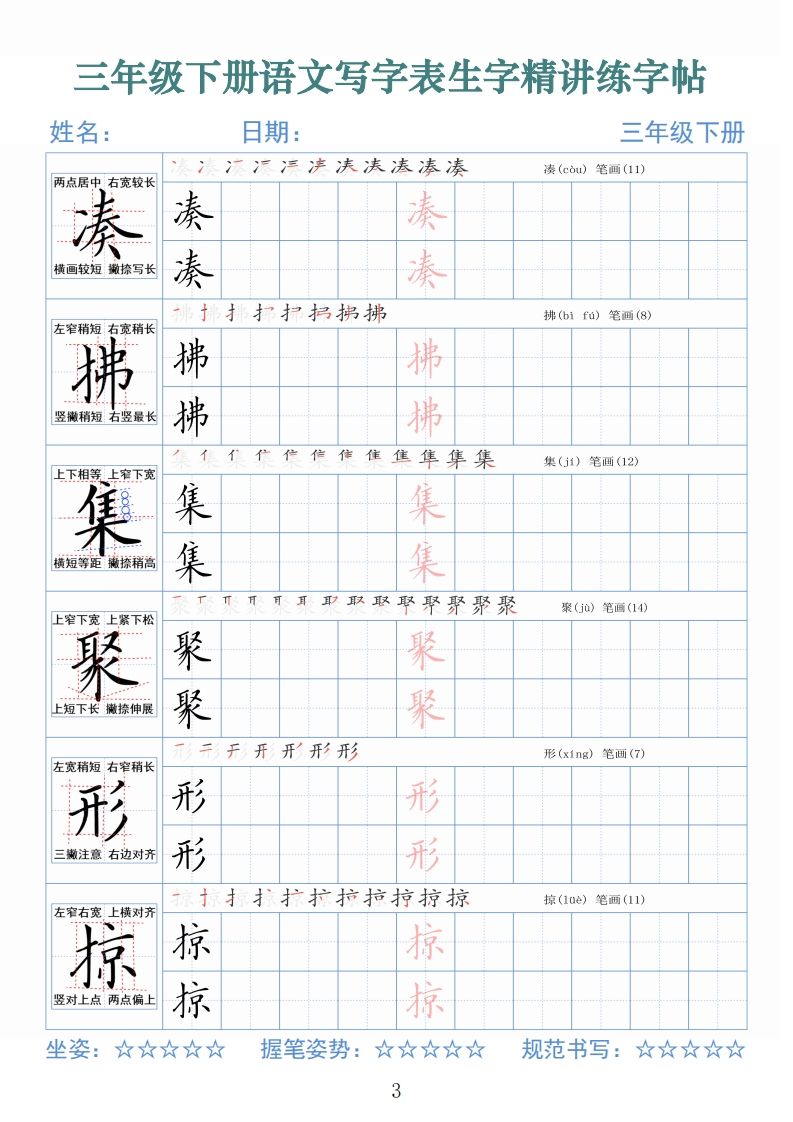 三年级下册语文写字表生字精讲练字帖
姓名： 日期： 三年级下册
凑(còu) 笔画(11)
两点居中 右宽较长
凑
横画较短 撇捺写长
凑 凑
凑 凑
拂(bì fú) 笔画(8)
左窄稍短 右宽稍长
拂
竖撇稍短 右竖最长
拂 拂
拂 拂
集(jí) 笔画(12)
上下相等 上窄下宽
集
横短等距 撇捺稍高
集 集
集 集
聚(jù) 笔画(14)
上窄下宽 上紧下松
聚
上短下长 撇捺伸展
聚 聚
聚 聚
形(xíng) 笔画(7)
左宽稍短 右窄稍长
形
三撇注意 右边对齐
形 形
形 形
掠(lüè) 笔画(11)
左窄右宽 上横对齐
掠
竖对上点 两点偏上
掠 掠
掠 掠
坐姿：☆☆☆☆☆ 握笔姿势：☆☆☆☆☆ 规范书写：☆☆☆☆☆
3